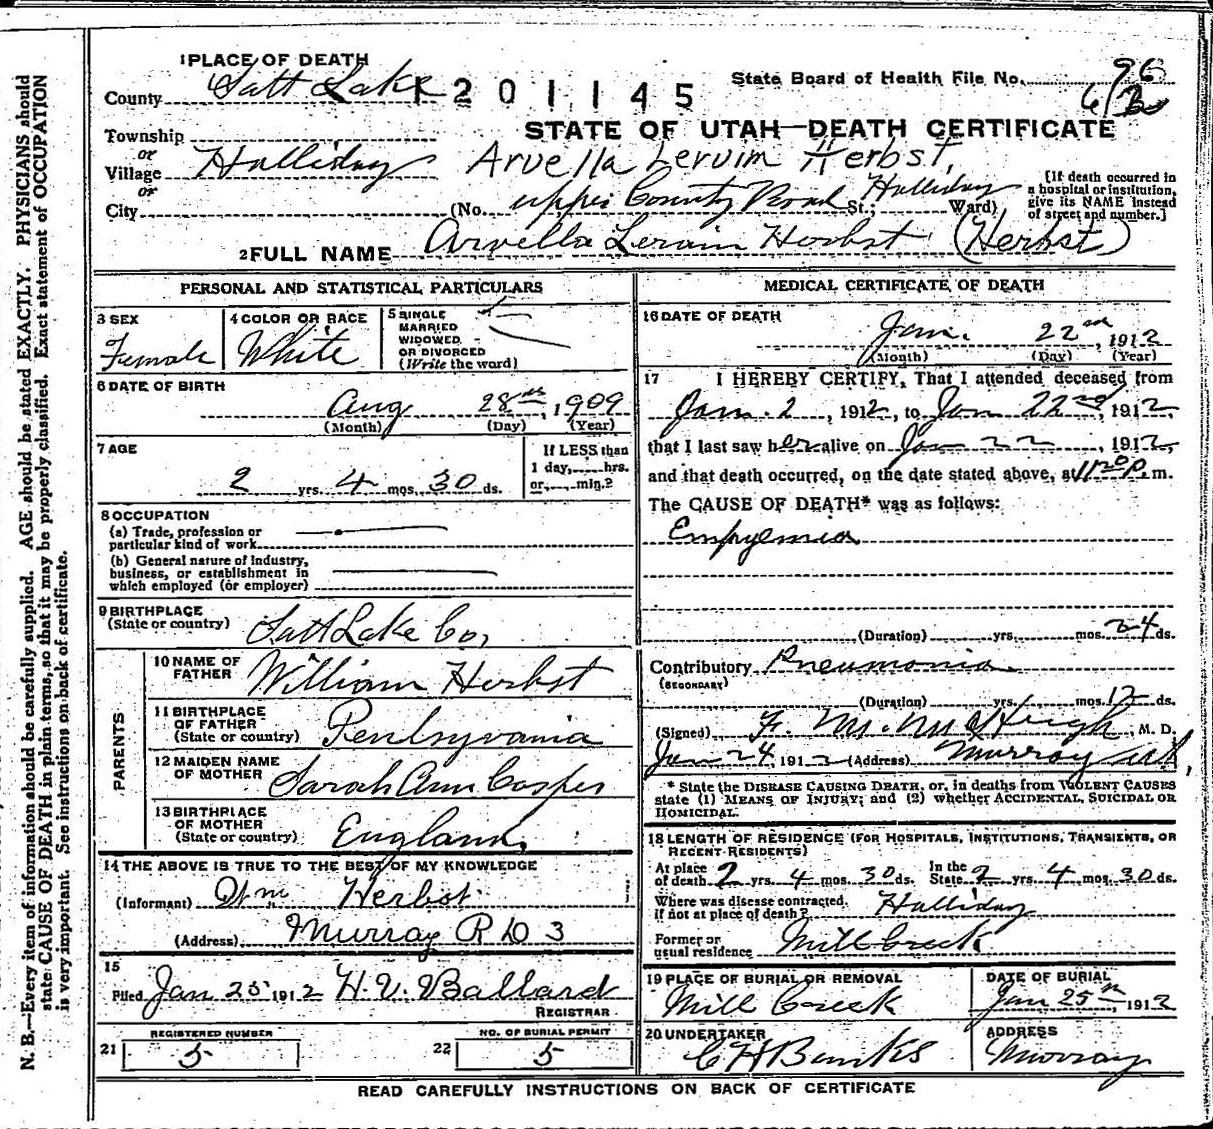 1 PLACE OF DEATH
County Salt Lake
1 2 0 1 1 4 5
State Board of Health File No. 96
STATE OF UTAH—DEATH CERTIFICATE
Township
or
Village Halliday
Arvella Lervim Herbst.
or
City
(No. upper County Road St.; Halliday Ward)
[If death occurred in a hospital or institution, give its NAME instead of street and number.]
2 FULL NAME Arvella Lerain Herbst (Herbst)
PERSONAL AND STATISTICAL PARTICULARS
3 SEX
Female
4 COLOR OR RACE
White
5 SINGLE
MARRIED
WIDOWED
OR DIVORCED
(Write the word)
6 DATE OF BIRTH
Aug 28th, 1909
(Month) (Day) (Year)
7 AGE
2 yrs. 4 mos. 30 ds.
If LESS than
1 day, hrs.
or, min.?
8 OCCUPATION
(a) Trade, profession or
particular kind of work
(b) General nature of industry,
business, or establishment in
which employed (or employer)
9 BIRTHPLACE
(State or country) Salt Lake Co,
PARENTS
10 NAME OF
FATHER William Herbst
11 BIRTHPLACE
OF FATHER
(State or country) Penlsyvania
12 MAIDEN NAME
OF MOTHER Sarah Ann Casper
13 BIRTHPLACE
OF MOTHER
(State or country) England,
14 THE ABOVE IS TRUE TO THE BEST OF MY KNOWLEDGE
(Informant) Wm Herbst
(Address) Murray R D 3
15
Filed Jan 25 1912 H. V. Ballard
REGISTRAR
REGISTERED NUMBER
21 5
NO. OF BURIAL PERMIT
22 5
MEDICAL CERTIFICATE OF DEATH
16 DATE OF DEATH
Jan. 22nd, 1912
(Month) (Day) (Year)
17 I HEREBY CERTIFY, That I attended deceased from
Jan. 2, 1912, to Jan 22nd, 1912,
that I last saw her alive on Jan 22, 1912,
and that death occurred, on the date stated above, at 11:20 p.m.
The CAUSE OF DEATH* was as follows:
Empyemia
(Duration) yrs. mos. 24 ds.
Contributory Pneumonia
(SECONDARY)
(Duration) yrs. mos. 12 ds.
(Signed) F. M. McHugh, M. D.
Jan 24, 1912 (Address) Murray Ut,
* State the DISEASE CAUSING DEATH, or, in deaths from VIOLENT CAUSES
state (1) MEANS OF INJURY; and (2) whether ACCIDENTAL, SUICIDAL OR
HOMICIDAL.
18 LENGTH OF RESIDENCE (FOR HOSPITALS, INSTITUTIONS, TRANSIENTS, OR
RECENT RESIDENTS)
At place of death 2 yrs. 4 mos. 30 ds. In the State 2 yrs. 4 mos. 30 ds.
Where was disease contracted,
if not at place of death? Halliday
Former or
usual residence Mill Creek
19 PLACE OF BURIAL OR REMOVAL
Mill Creek
DATE OF BURIAL
Jan 25th, 1912
20 UNDERTAKER
C H Banks
ADDRESS
Murray
READ CAREFULLY INSTRUCTIONS ON BACK OF CERTIFICATE
N. B.—Every item of information should be carefully supplied. AGE should be stated EXACTLY. PHYSICIANS should
state CAUSE OF DEATH in plain terms, so that it may be properly classified. Exact statement of OCCUPATION
is very important. See instructions on back of certificate.